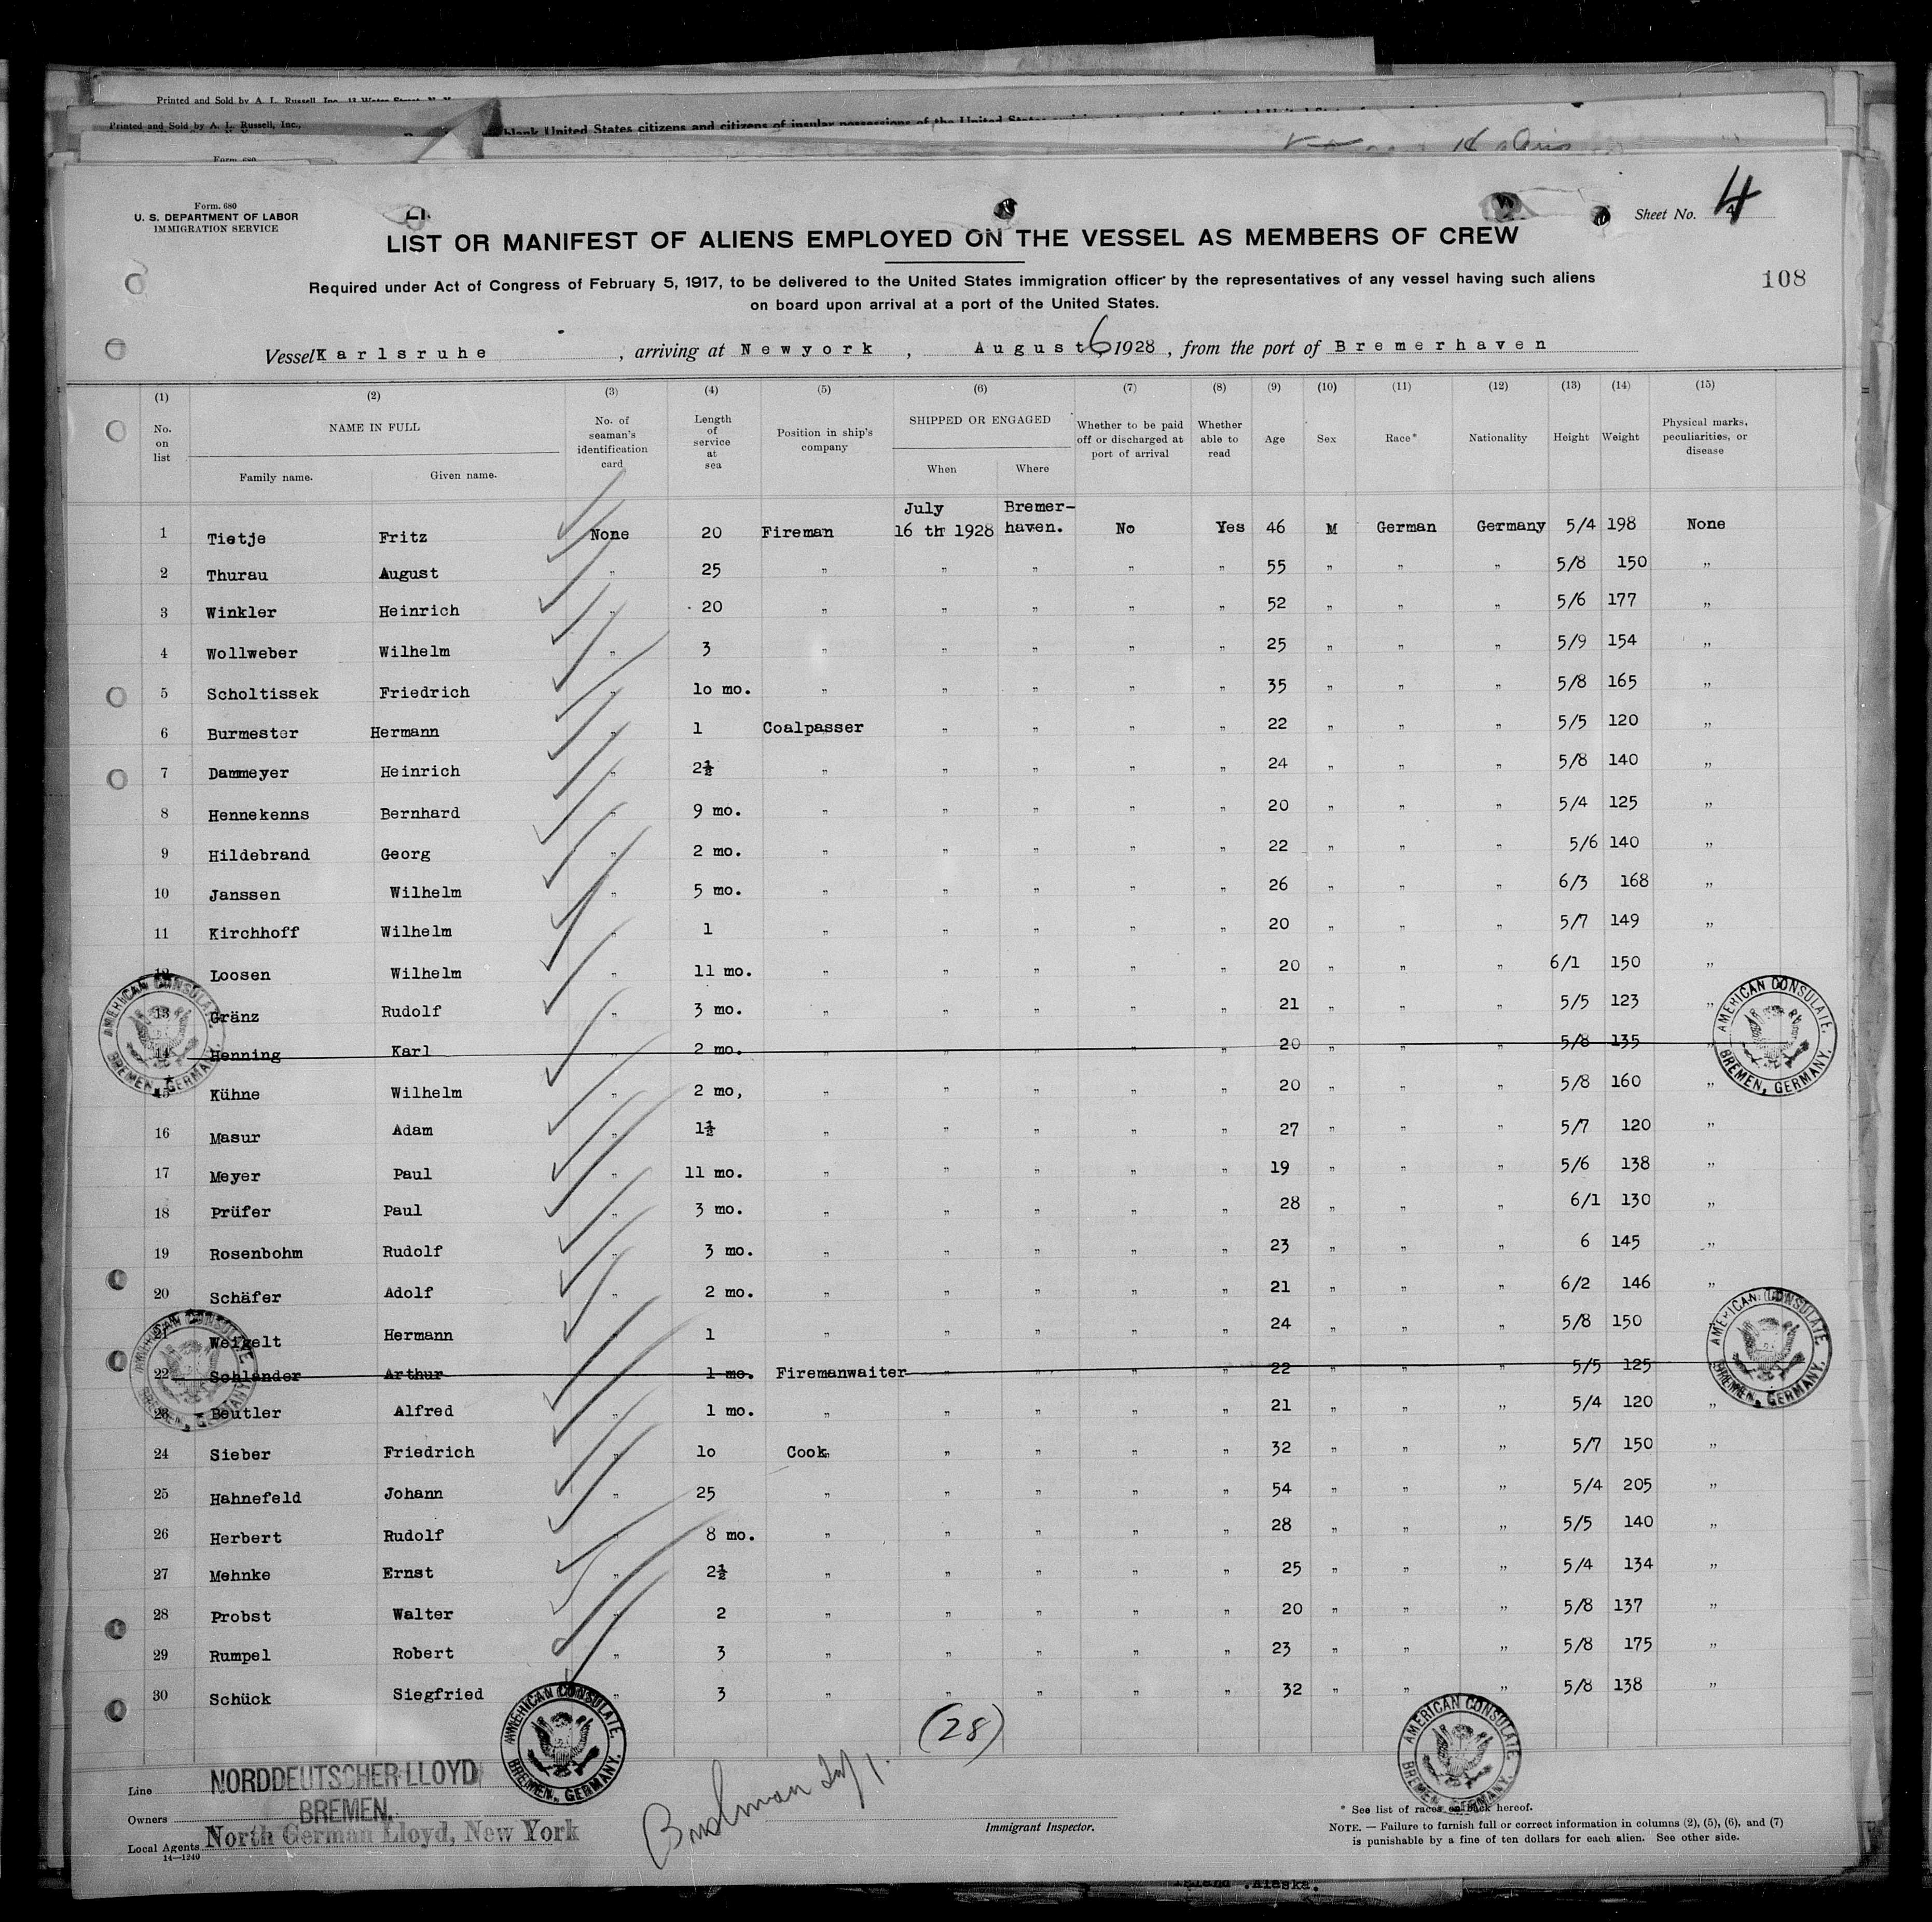 Printed and Sold by A. L. Russell, Inc.,
Printed and Sold by A. L. Russell, Inc.,
blank United States citizens and citizens of insular possessions of the United States
Form 680
Form. 680
U. S. DEPARTMENT OF LABOR
IMMIGRATION SERVICE
Sheet No. 4
4
LIST OR MANIFEST OF ALIENS EMPLOYED ON THE VESSEL AS MEMBERS OF CREW
Required under Act of Congress of February 5, 1917, to be delivered to the United States immigration officer by the representatives of any vessel having such aliens
on board upon arrival at a port of the United States.
108
Vessel Karlsruhe , arriving at Newyork , August 6 1928 , from the port of Bremerhaven
(1) (2) (3) (4) (5) (6) (7) (8) (9) (10) (11) (12) (13) (14) (15)
No. on list NAME IN FULL Family name. Given name. No. of seaman's identification card Length of service at sea Position in ship's company SHIPPED OR ENGAGED When Where Whether to be paid off or discharged at port of arrival Whether able to read Age Sex Race* Nationality Height Weight Physical marks, peculiarities, or disease
July Bremer-
1 Tietje Fritz None 20 Fireman 16 th 1928 haven. No Yes 46 M German Germany 5/4 198 None
2 Thurau August " 25 " " " " " 55 " " " 5/8 150 "
3 Winkler Heinrich " 20 " " " " " 52 " " " 5/6 177 "
4 Wollweber Wilhelm " 3 " " " " " 25 " " " 5/9 154 "
5 Scholtissek Friedrich " 10 mo. " " " " " 35 " " " 5/8 165 "
6 Burmester Hermann " 1 Coalpasser " " " " 22 " " " 5/5 120 "
7 Dammeyer Heinrich " 2½ " " " " " 24 " " " 5/8 140 "
8 Hennekenns Bernhard " 9 mo. " " " " " 20 " " " 5/4 125 "
9 Hildebrand Georg " 2 mo. " " " " " 22 " " " 5/6 140 "
10 Janssen Wilhelm " 5 mo. " " " " " 26 " " " 6/3 168 "
11 Kirchhoff Wilhelm " 1 " " " " " 20 " " " 5/7 149 "
12 Loosen Wilhelm " 11 mo. " " " " " 20 " " " 6/1 150 "
13 Gränz Rudolf " 3 mo. " " " " " 21 " " " 5/5 123 "
14 Henning Karl " 2 mo. " " " " " 20 " " " 5/8 135 "
15 Kühne Wilhelm " 2 mo, " " " " " 20 " " " 5/8 160 "
16 Masur Adam " 1½ " " " " " 27 " " " 5/7 120 "
17 Meyer Paul " 11 mo. " " " " " 19 " " " 5/6 138 "
18 Prüfer Paul " 3 mo. " " " " " 28 " " " 6/1 130 "
19 Rosenbohm Rudolf " 3 mo. " " " " " 23 " " " 6 145 "
20 Schäfer Adolf " 2 mo. " " " " " 21 " " " 6/2 146 "
21 Weigelt Hermann " 1 " " " " " 24 " " " 5/8 150 "
22 Schlander Arthur " 1 mo. Firemanwaiter " " " " 22 " " " 5/5 125 "
23 Beutler Alfred " 1 mo. " " " " " 21 " " " 5/4 120 "
24 Sieber Friedrich " 10 Cook " " " " 32 " " " 5/7 150 "
25 Hahnefeld Johann " 25 " " " " " 54 " " " 5/4 205 "
26 Herbert Rudolf " 8 mo. " " " " " 28 " " " 5/5 140 "
27 Mehnke Ernst " 2½ " " " " " 25 " " " 5/4 134 "
28 Probst Walter " 2 " " " " " 20 " " " 5/8 137 "
29 Rumpel Robert " 3 " " " " " 23 " " " 5/8 175 "
30 Schück Siegfried " 3 " " " " " 32 " " " 5/8 138 "
AMERICAN CONSULATE. BREMEN, GERMANY.
AMERICAN CONSULATE. BREMEN, GERMANY.
AMERICAN CONSULATE. BREMEN, GERMANY.
AMERICAN CONSULATE. BREMEN, GERMANY.
AMERICAN CONSULATE. BREMEN, GERMANY.
AMERICAN CONSULATE. BREMEN, GERMANY.
(28)
Line NORDDEUTSCHER LLOYD
Owners BREMEN.
Local Agents North German Lloyd, New York
14—1240
Immigrant Inspector.
* See list of races on back hereof.
NOTE. — Failure to furnish full or correct information in columns (2), (5), (6), and (7)
is punishable by a fine of ten dollars for each alien. See other side.
Island .Alaska.